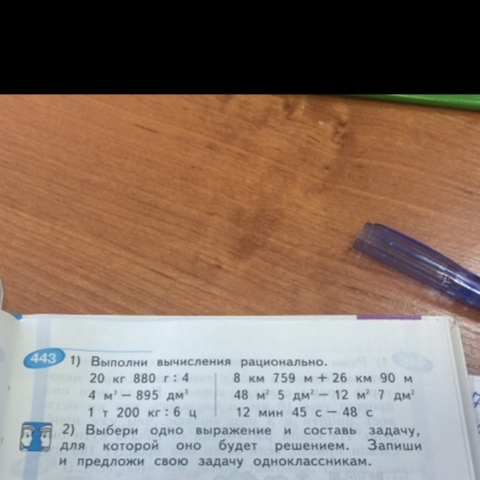 443 1) Выполни вычисления рационально.
20 кг 880 г : 4 8 км 759 м + 26 км 90 м
4 м³ – 895 дм³ 48 м² 5 дм² – 12 м² 7 дм²
1 т 200 кг : 6 ц 12 мин 45 с – 48 с
2) Выбери одно выражение и составь задачу,
для которой оно будет решением. Запиши
и предложи свою задачу одноклассникам.